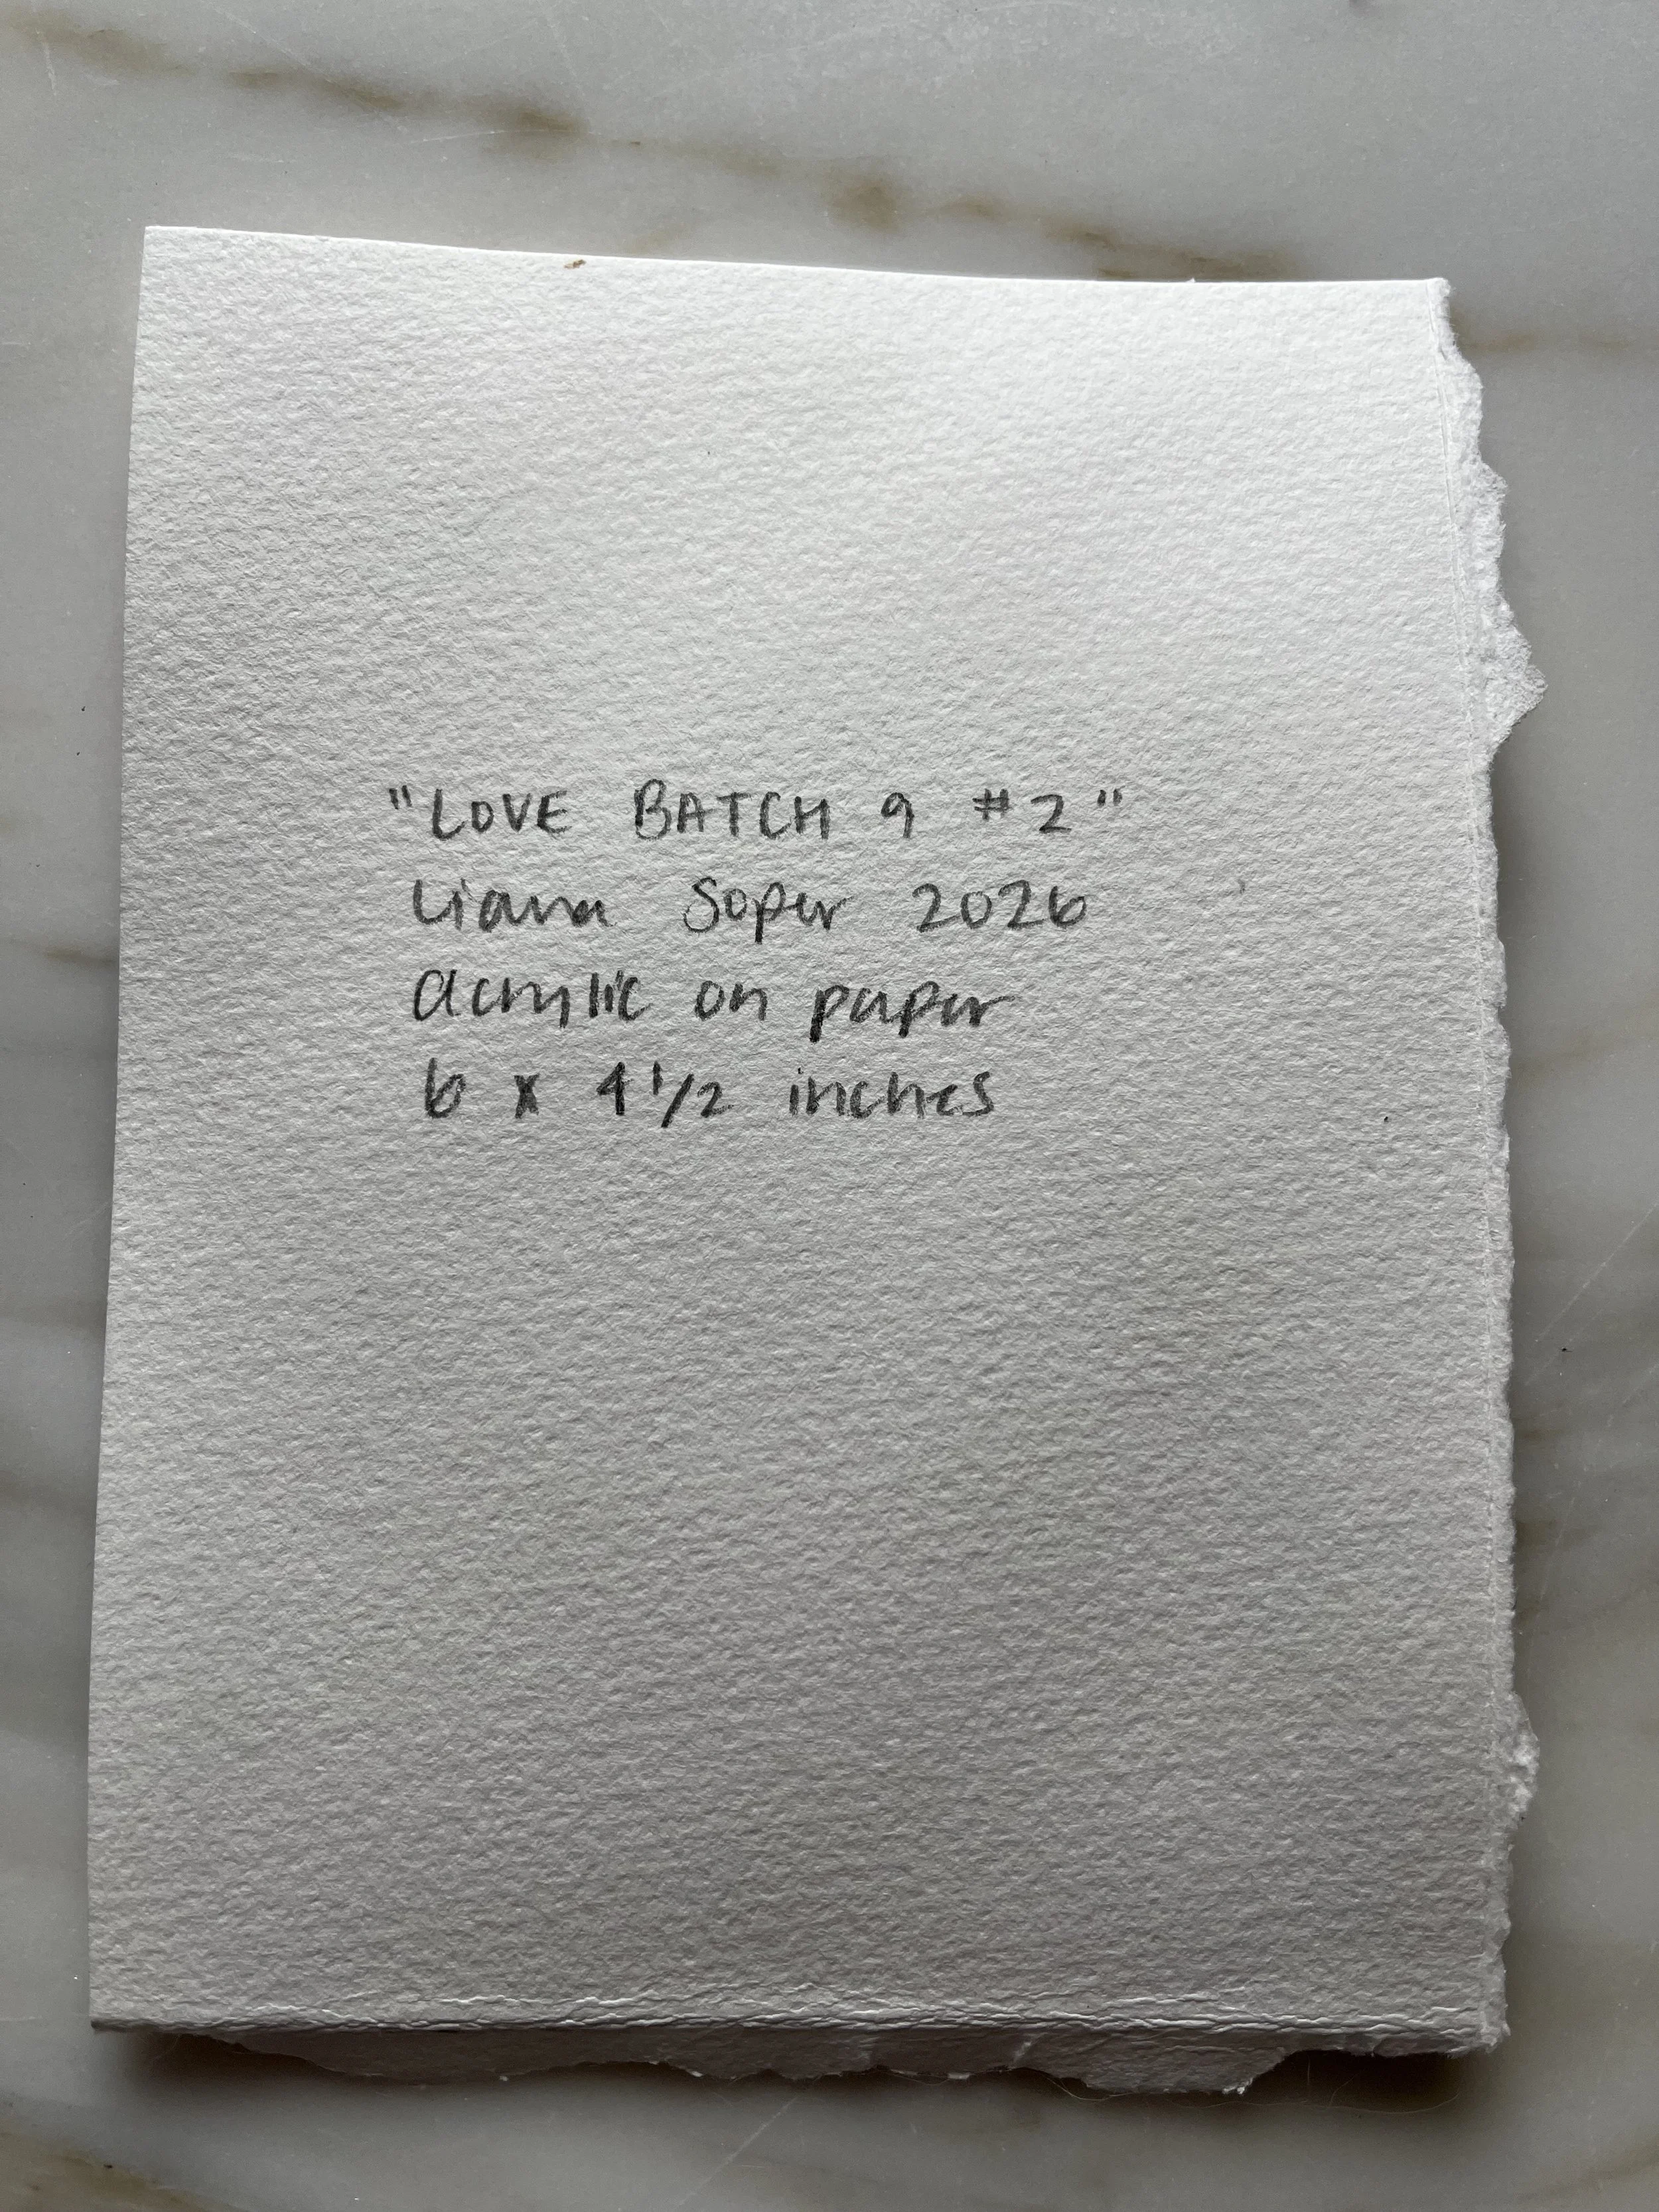 "LOVE BATCH 9 #2"
Liana Soper 2026
acrylic on paper
6 x 4 1/2 inches